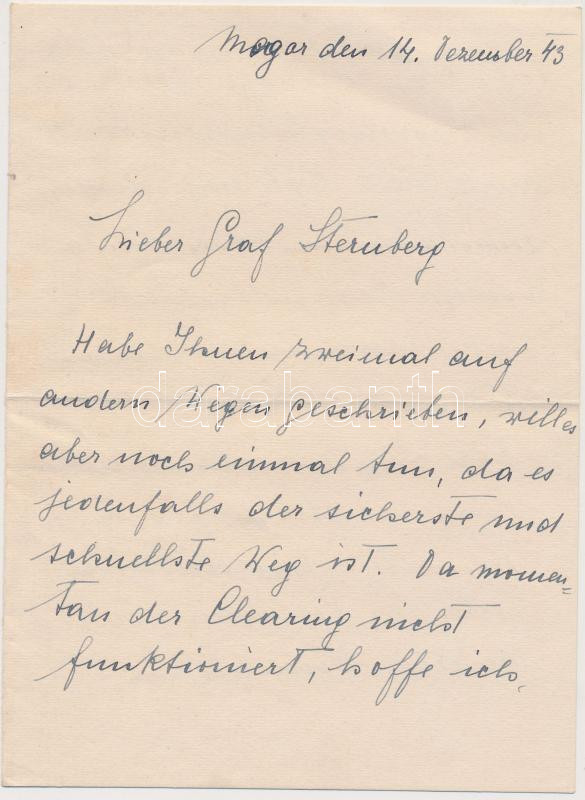 Magor den 14. Dezember 43
Lieber Graf Sternberg
Habe Ihnen zweimal auf
andern Wegen geschrieben, will es
aber noch einmal tun, da es
jedenfalls der sicherste und
schnellste Weg ist. Da momen=
tan der Clearing nicht
funktioniert, hoffe ich,
darabanth